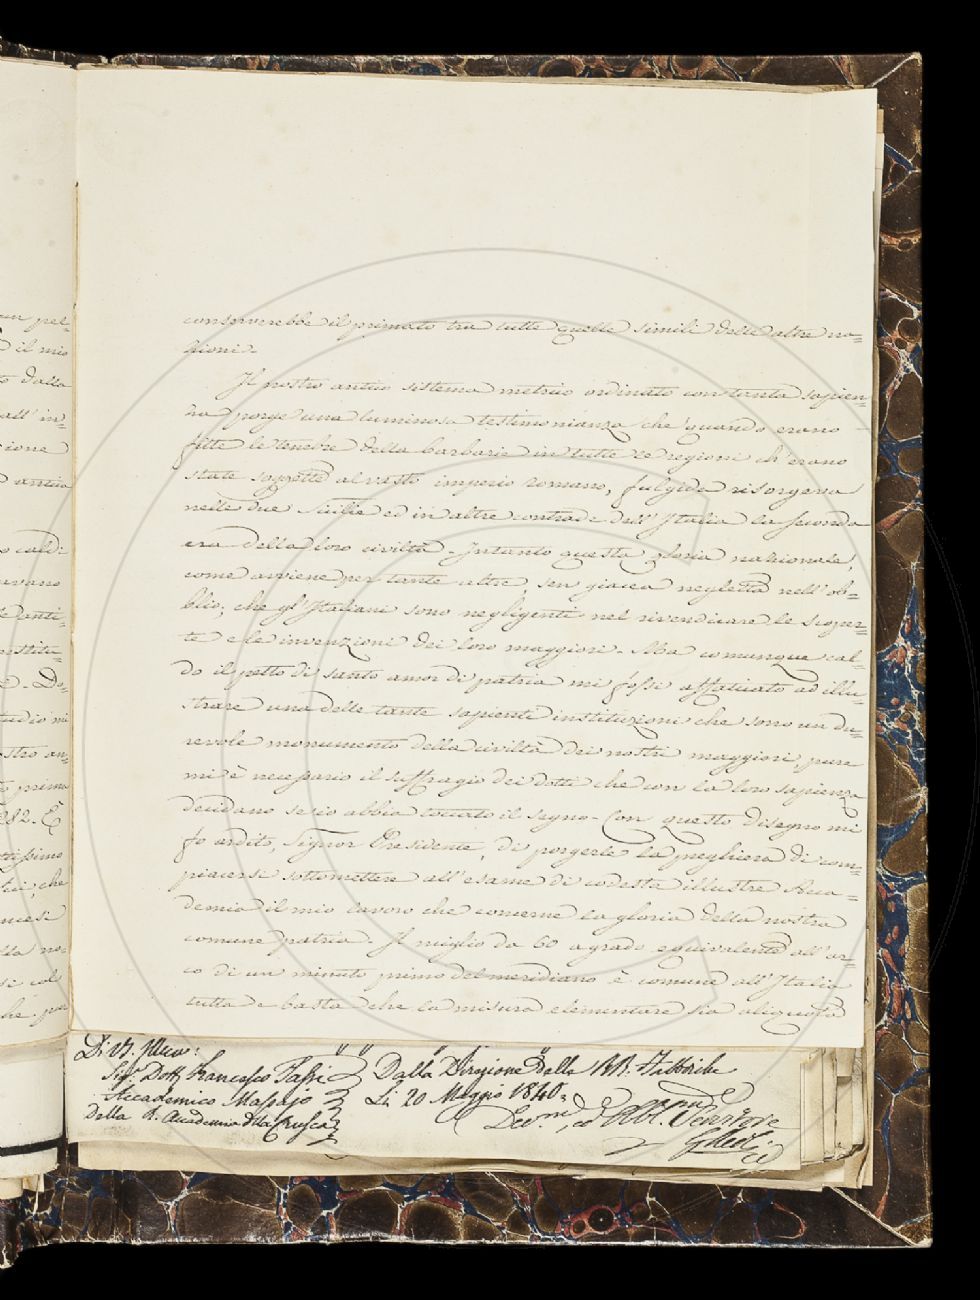 un per=
il mio
dalla
all' in=
cione
antica
cald:
uvano
anti=
estitu=
Do=
tudio mi
stro an=
primo
282. È
ttissimo
che
ncesi
no=
col
che
conserverebbe il primato tra tutte quelle simili delle altre na=
zioni.
Il nostro antico sistema metrico ordinato con tanta sapien=
za porge una luminosa testimonianza che quando erano
fitte le tenebre della barbarie in tutte le regioni ch'erano
state soggette al vasto imperio romano, fulgida risorgeva
nelle due Sicilie ed in altre contrade dell'Italia la seconda
era della loro civiltà. Intanto questa gloria nazionale,
come avviene per tante altre sen giacea negletta nell'ob=
blio; che gl'Italiani sono negligenti nel rivendicare le scoper=
te e le invenzioni dei loro maggiori. Ma comunque cal=
do il petto di santo amor di patria mi fossi affaticato ad illu=
strare una delle tante sapienti instituzioni che sono un du=
revole monumento della civiltà dei nostri maggiori, pure
mi è necessario il suffragio dei dotti che con la loro sapienza
decidano se io abbia toccato il segno. Con questo disegno mi
fo ardito, Signor Presidente, di porgerle la preghiera di com=
piacersi sottomettere all'esame di codesta illustre Acca=
demia il mio lavoro che concerne la gloria della nostra
comune patria. Il miglio da 60 a grado equivalente all'ar=
co di un minuto primo del meridiano è comune all'Italia
tutta e basta che la misura elementare sia aliquota
Di V. S.
Sigr. Dott. Francesco Tassi
Accademico Massajo
Della R. Accademia della Crusca
Dalla Direzione Della RR. Fabbriche
Li 20 Maggio 1840.
Dev.mo, ed Obb. Servitore